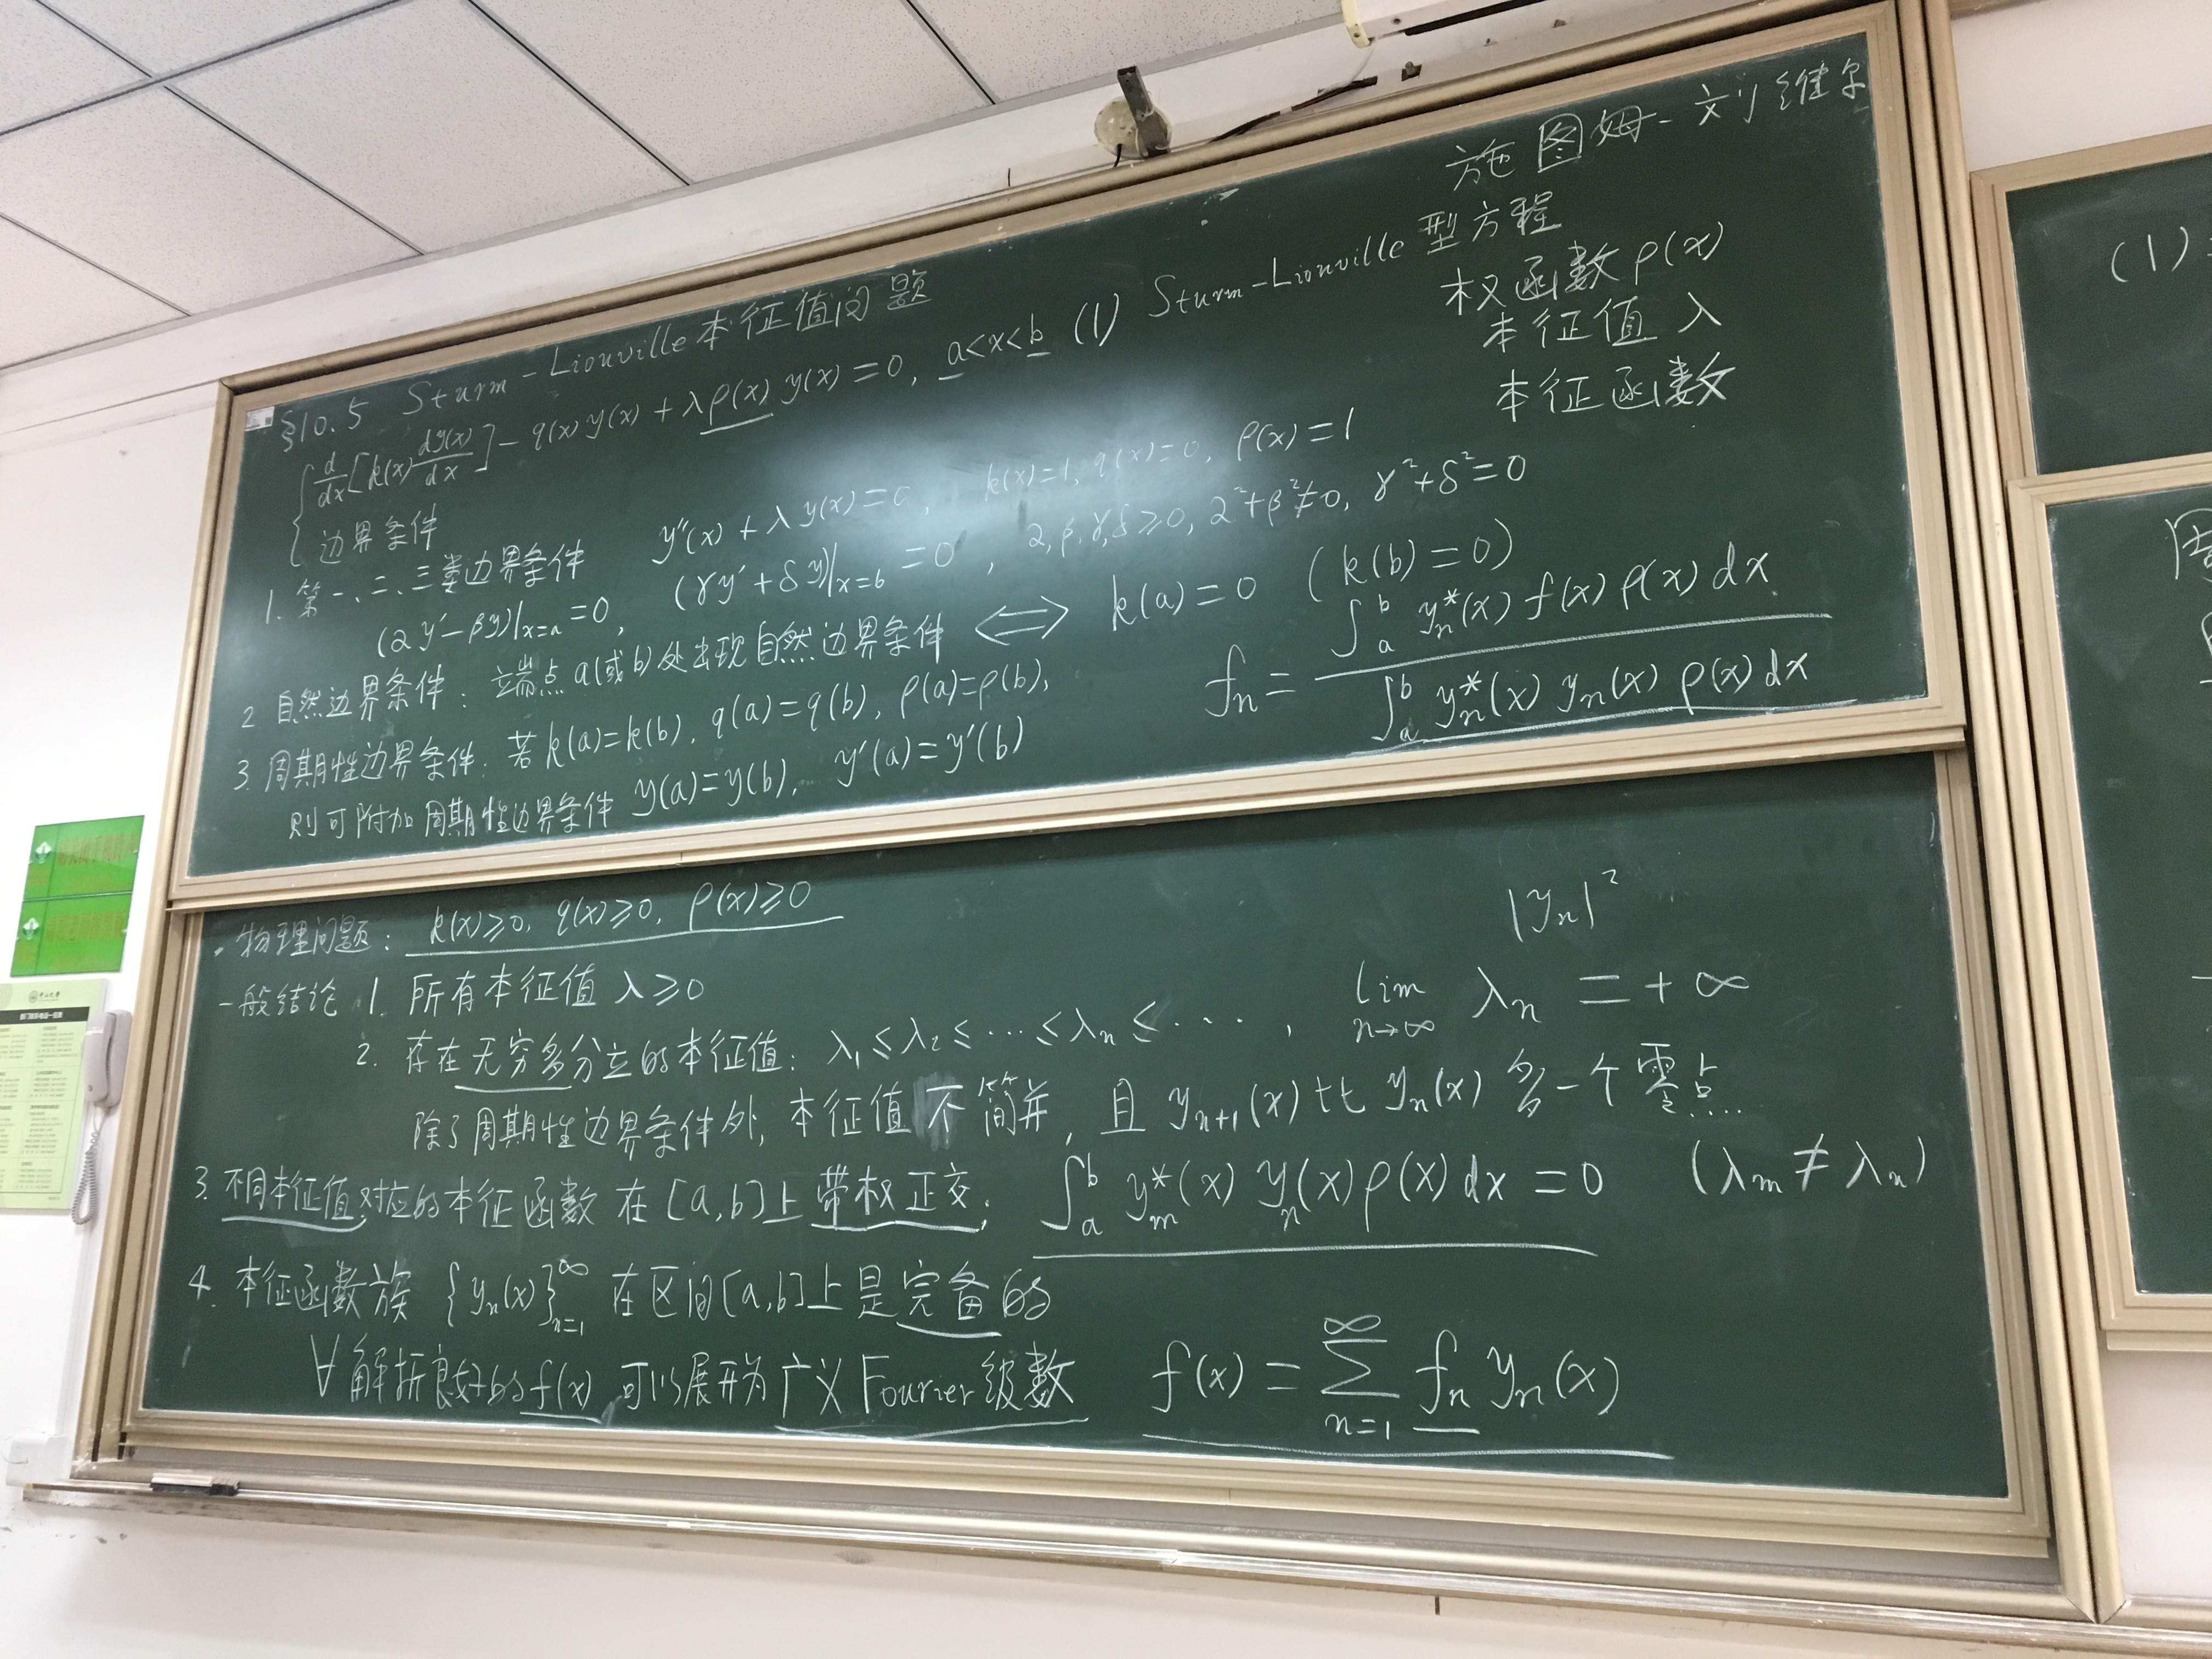 施图姆-刘维尔
§10.5 Sturm-Liouville本征值问题
d/dx[k(x)dy(x)/dx] - q(x)y(x) + λρ(x)y(x)=0, a<x<b (1) Sturm-Liouville型方程
边界条件
权函数ρ(x)
本征值λ
本征函数
y''(x)+λy(x)=0, k(x)=1, q(x)=0, ρ(x)=1
1. 第一、二、三类边界条件
(αy'-βy)|x=a=0, (γy'+δy)|x=b=0, α,β,γ,δ≥0, α²+β²≠0, γ²+δ²=0
2. 自然边界条件: 端点a(或b)处出现自然边界条件 ⟺ k(a)=0 (k(b)=0)
3. 周期性边界条件: 若k(a)=k(b), q(a)=q(b), ρ(a)=ρ(b),
则可附加周期性边界条件 y(a)=y(b), y'(a)=y'(b)
fn = ∫ₐᵇ yn*(x) f(x) ρ(x) dx / ∫ₐᵇ yn*(x) yn(x) ρ(x) dx
物理问题: k(x)≥0, q(x)≥0, ρ(x)≥0
|yn|²
一般结论 1. 所有本征值λ≥0
2. 存在无穷多分立的本征值: λ₁≤λ₂≤…≤λn≤…., lim n→∞ λn = +∞
除了周期性边界条件外, 本征值不简并, 且yn+1(x)比yn(x)多一个零点
3. 不同本征值对应的本征函数在[a,b]上带权正交: ∫ₐᵇ ym*(x) yn(x) ρ(x) dx = 0 (λm≠λn)
4. 本征函数族 {yn(x)}∞n=1 在区间[a,b]上是完备的
∀解析良好的f(x) 可以展开为广义Fourier级数 f(x) = ∑∞n=1 fn yn(x)
(1)
中山大学